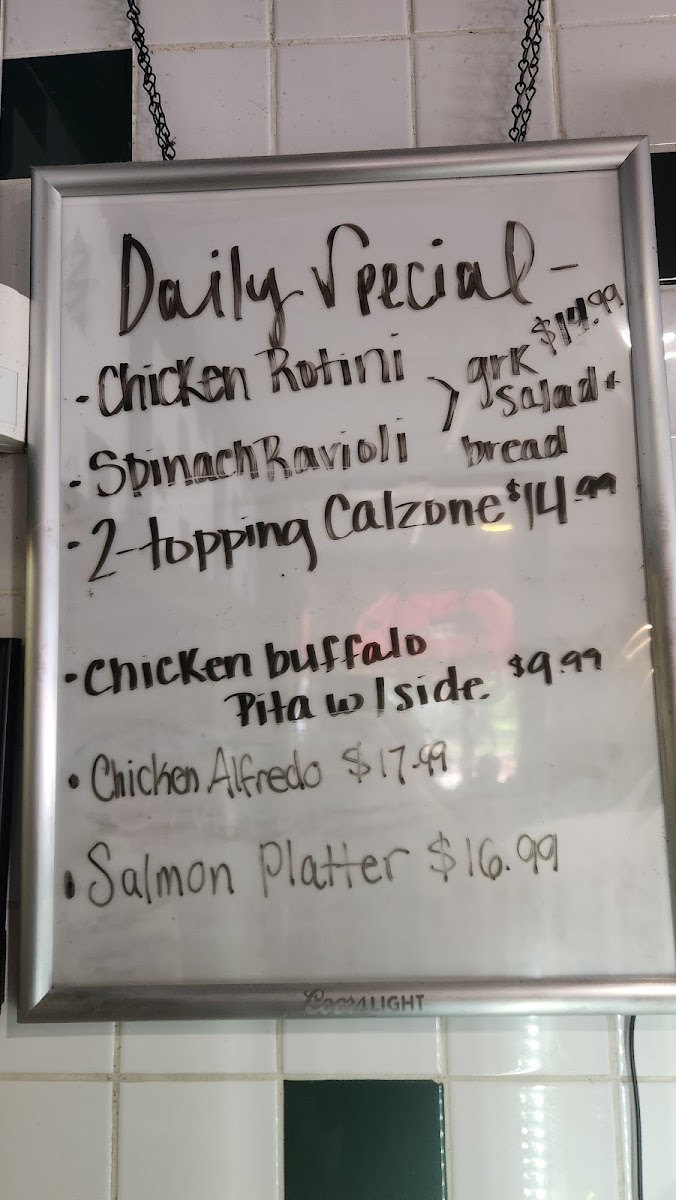 Daily Special -
· Chicken Rotini } grk $14.99
salad +
· Spinach Ravioli bread
· 2-topping Calzone $14.99
· Chicken buffalo
Pita w/side $9.99
· Chicken Alfredo $17.99
· Salmon Platter $16.99
Coors LIGHT